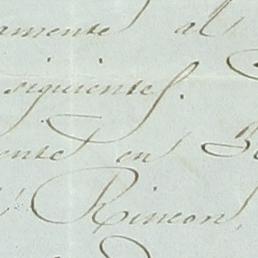 amente al
siguientes.
ente en
Rincon,